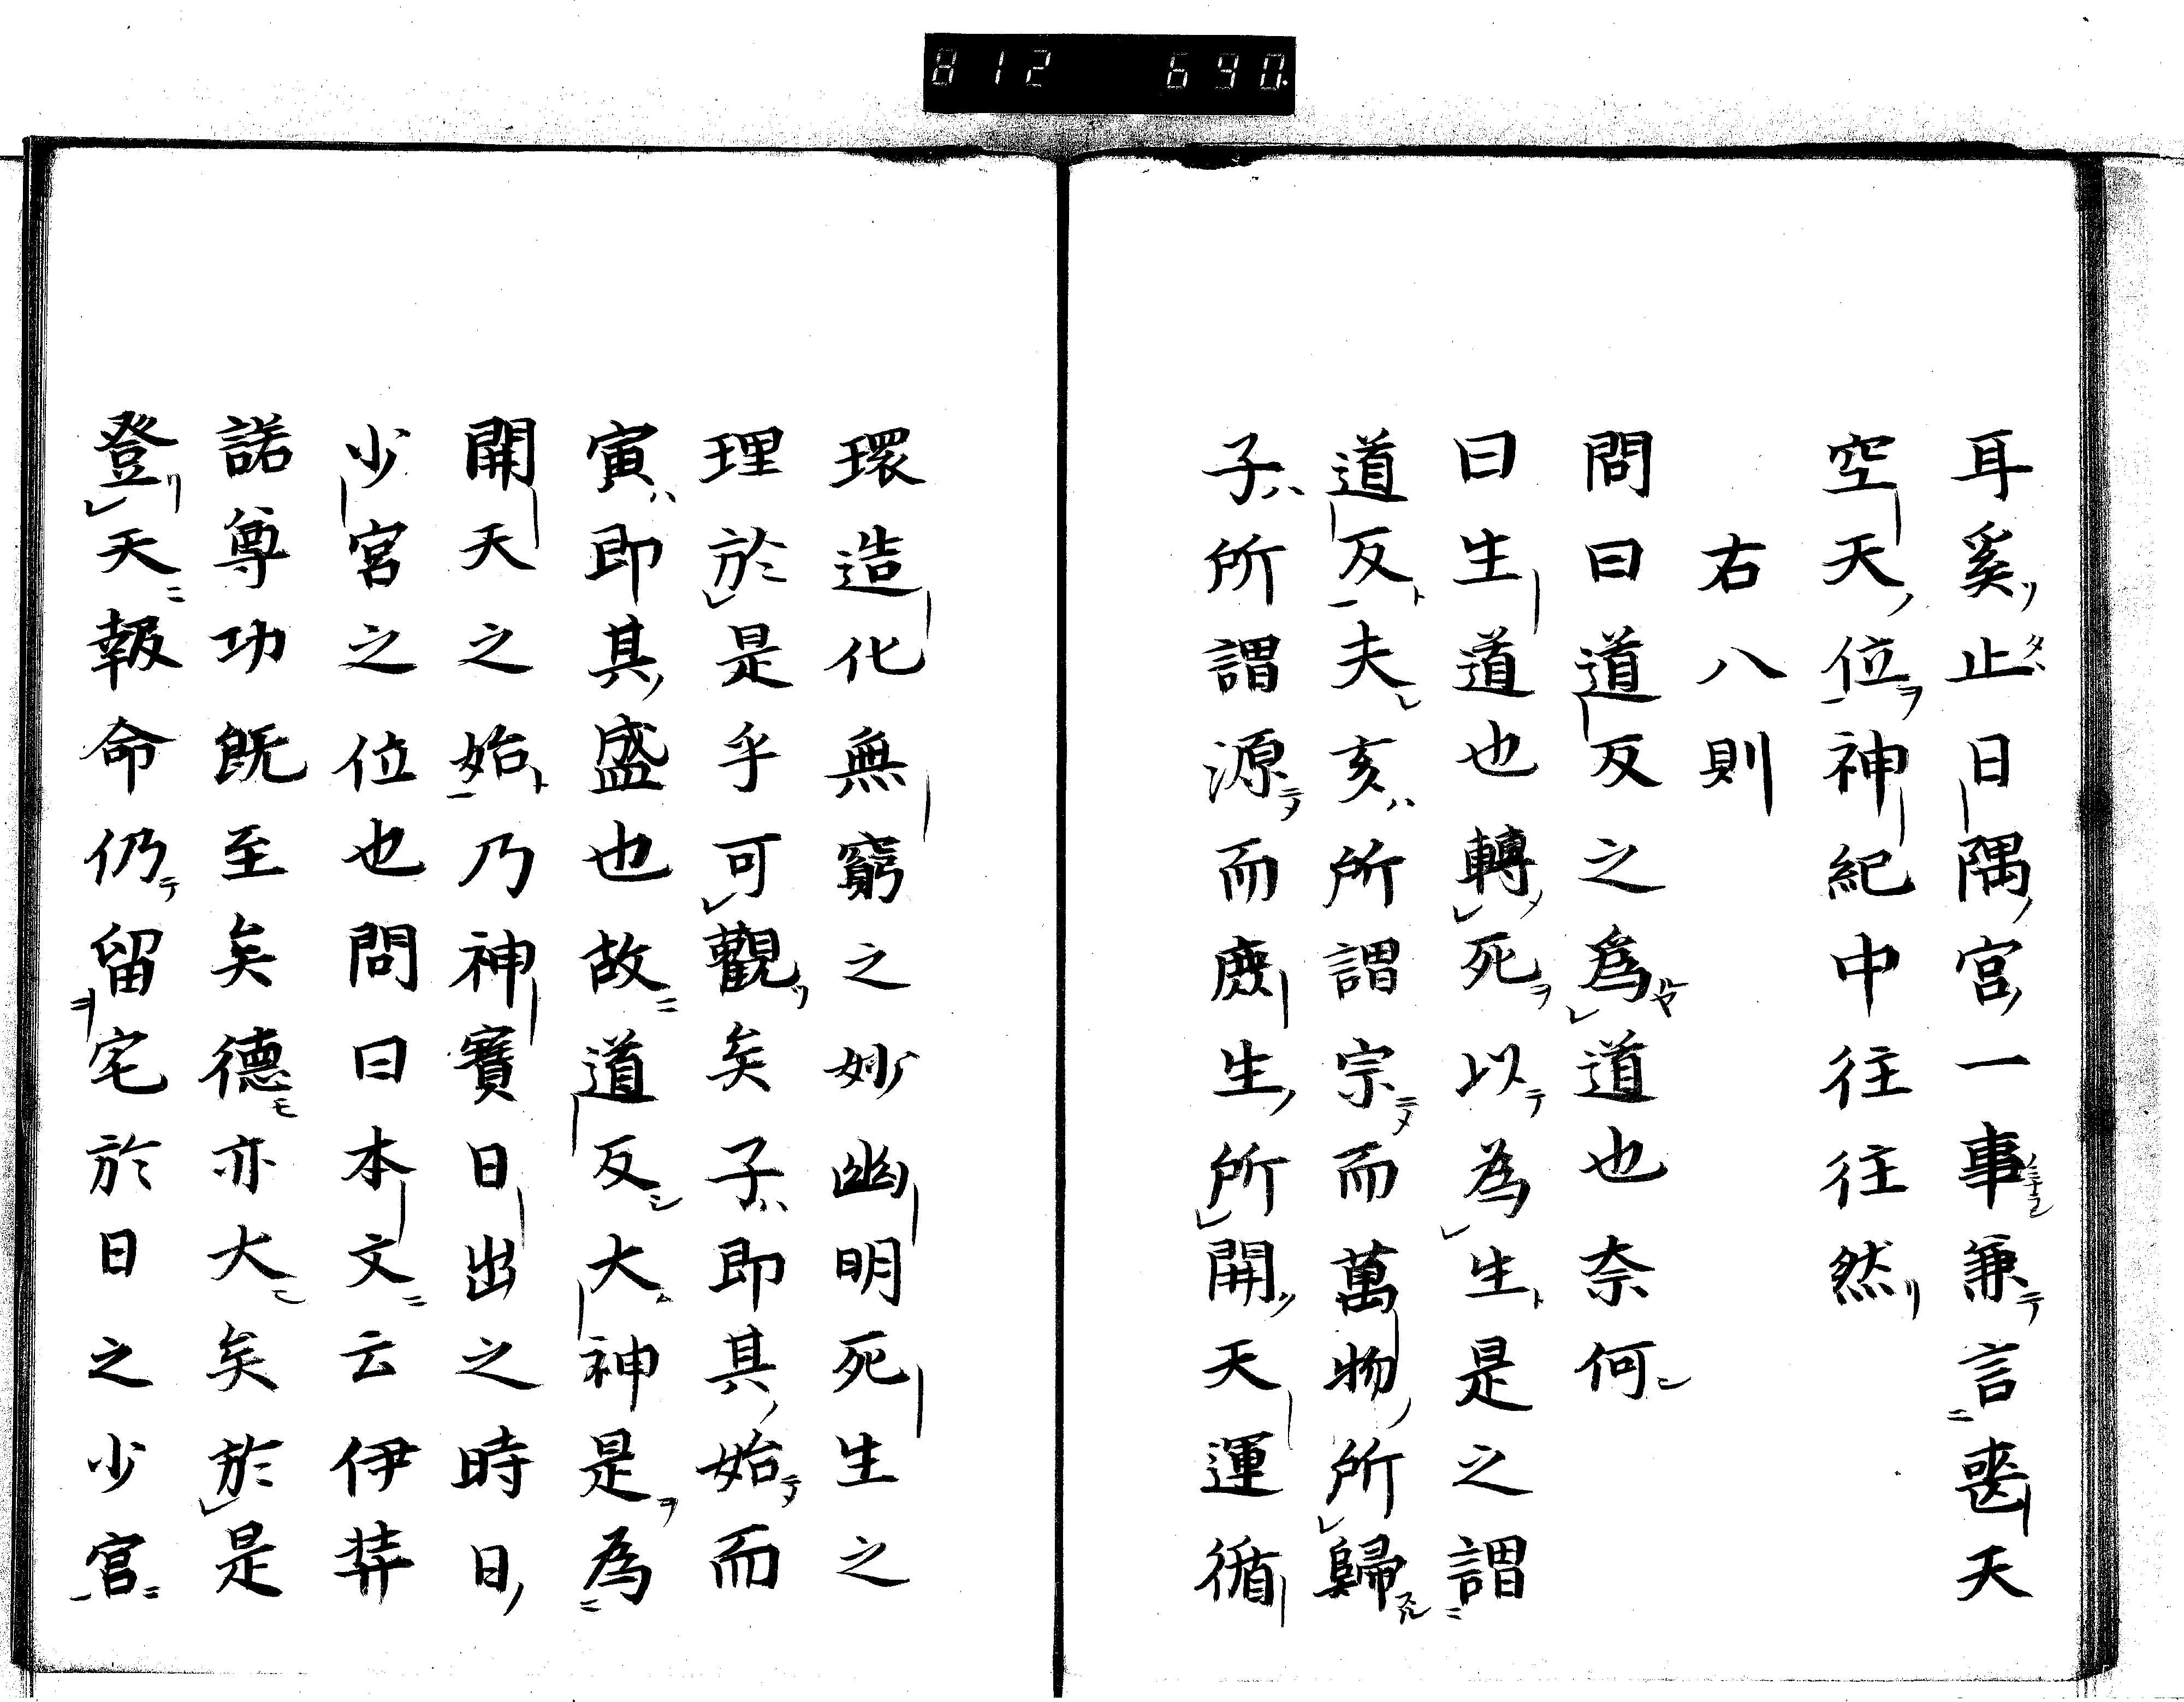 812 690
耳奚止日隅宮一事兼言喪天
空天位神紀中往往然
右八則
問曰道反之為道也奈何
曰生道也轉死以為生是之謂
道反夫亥所謂宗而萬物所歸
子所謂源而庶生所開天運循
環造化無窮之妙幽明死生之
理於是乎可觀矣子即其始而
寅即其盛也故道反大神是為
開天之始乃神寶日出之時日
少宮之位也問曰本文云伊弉
諾尊功既至矣德亦大矣於是
登天報命仍留宅於日之少宮